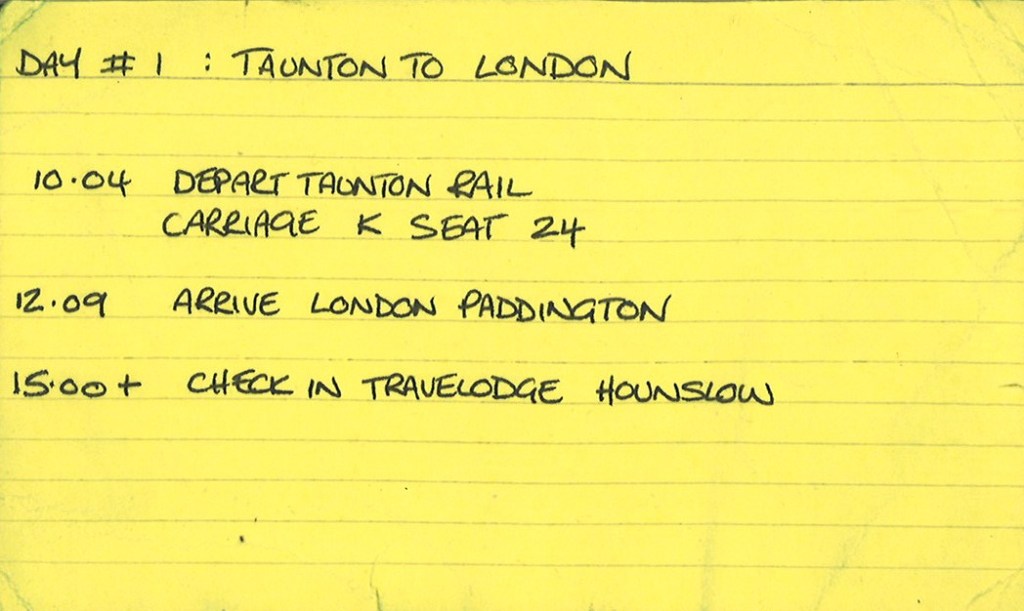 DAY # 1 : TAUNTON TO LONDON
10.04 DEPART TAUNTON RAIL
CARRIAGE K SEAT 24
12.09 ARRIVE LONDON PADDINGTON
15.00+ CHECK IN TRAVELODGE HOUNSLOW